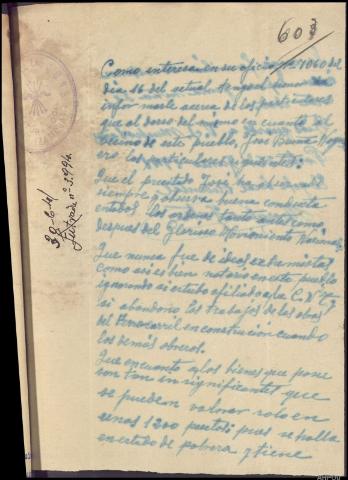 60
Como interesa en su oficio nº 7060 del
dia 16 del actual tengo el honor de
informarle acerca de los particulares
que al dorso del mismo en cuanto al
vecino de este pueblo, Jose
los particulares siguientes:
Que el precitado Jose ha observado
siempre y observa buena conducta
en todos los ordenes tanto antes como
despues del Glorioso Movimiento Nacional.
Que nunca fue de ideas extremistas
como asi es bien notorio en este pueblo
ignorando si estubo afiliado a la C.N.T.
si abandonó los trabajos de las obras
del Ferrocarril en construcion cuando
los demás obreros.
Que en cuanto a los bienes que posee
son tan insignificantes que
se pueden valorar solo en
unos 1200 pesetas; pues se halla
en estado de pobreza y tiene
28-6-41
Entrada nº 3.994